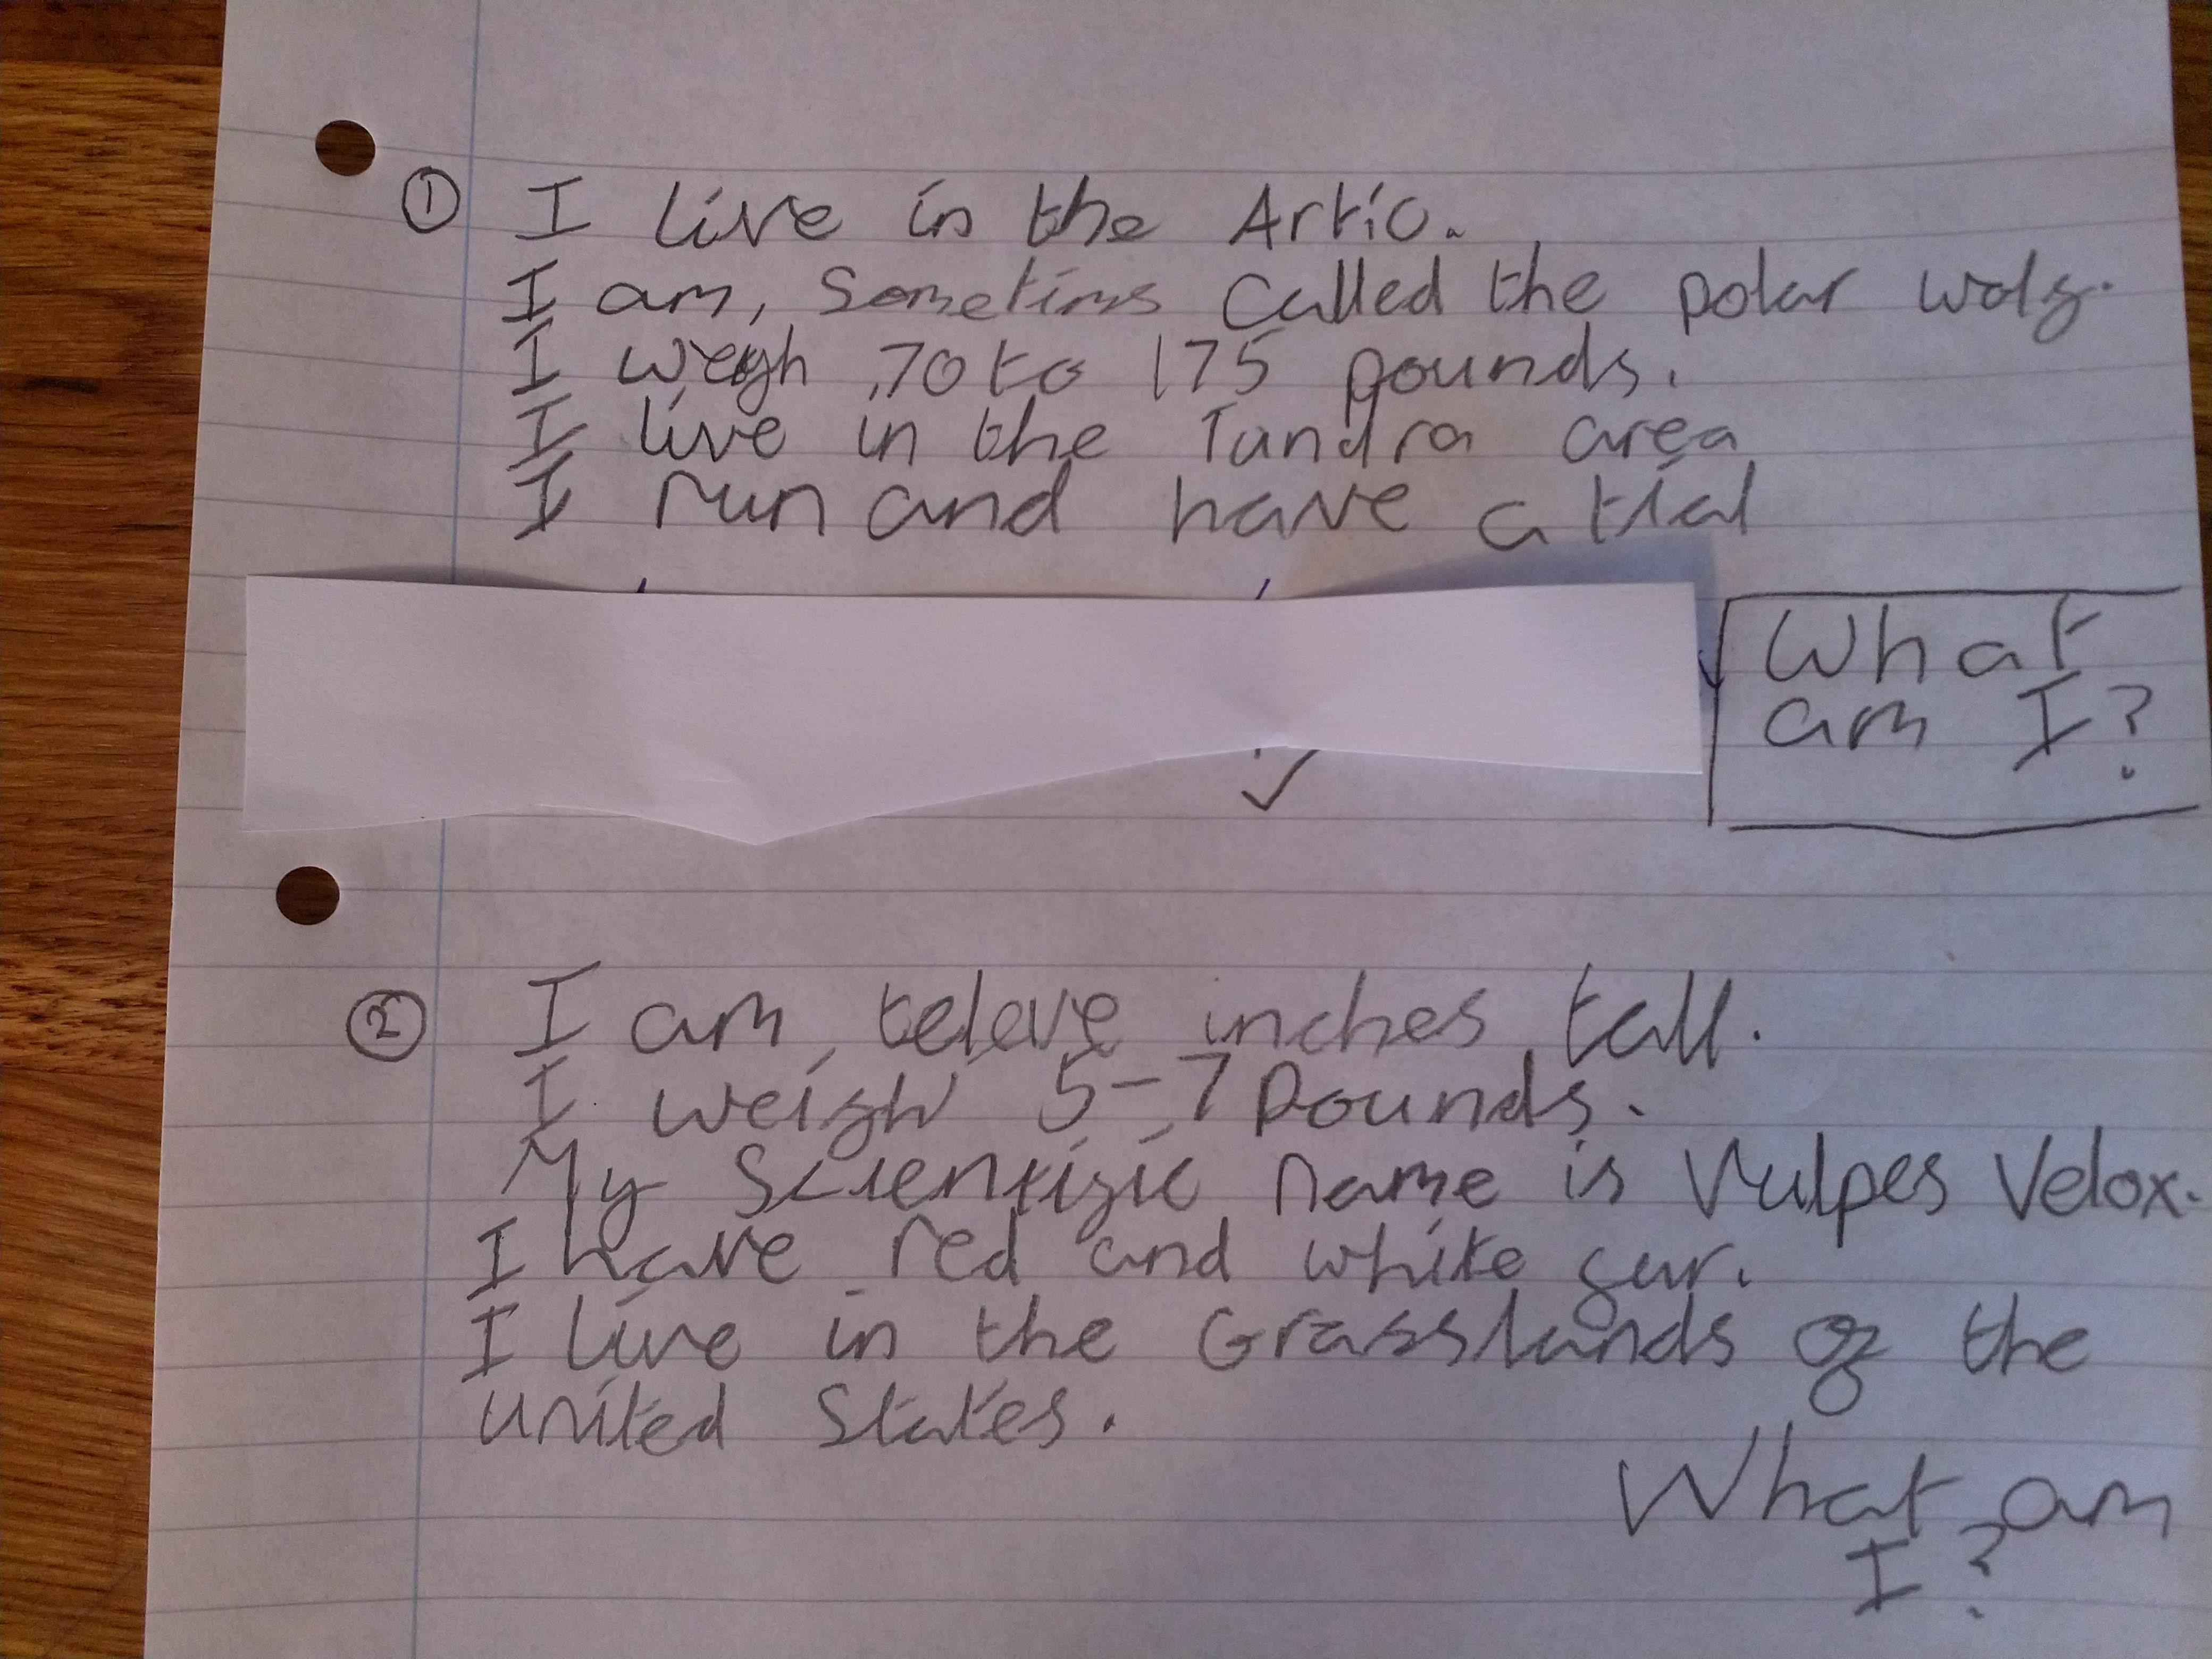 ① I live in the Artic.
I am, Sometims Called the polar wolf.
I weigh 70 to 175 pounds.
I live in the Tundra area
I run and have a tial
What
am I?
② I am televe inches tall.
I weigh 5-7 Pounds.
My Scientific name is Vulpes Velox.
I have red and white fur.
I live in the Grasslands of the
united States.
What am
I?